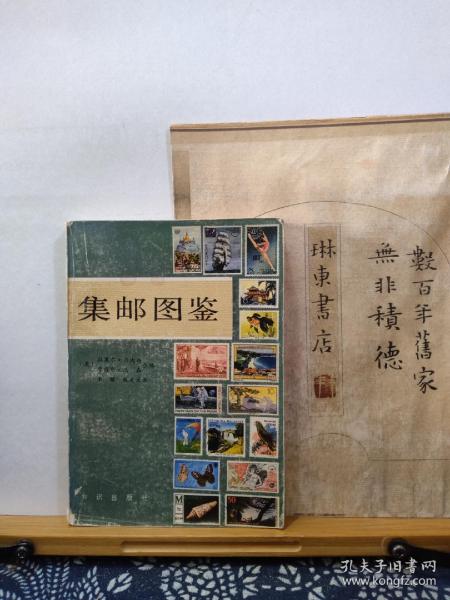 集邮图鉴
知识出版社
數百年舊家
無非積德
琳東書店
孔夫子旧书网
www.kongfz.com